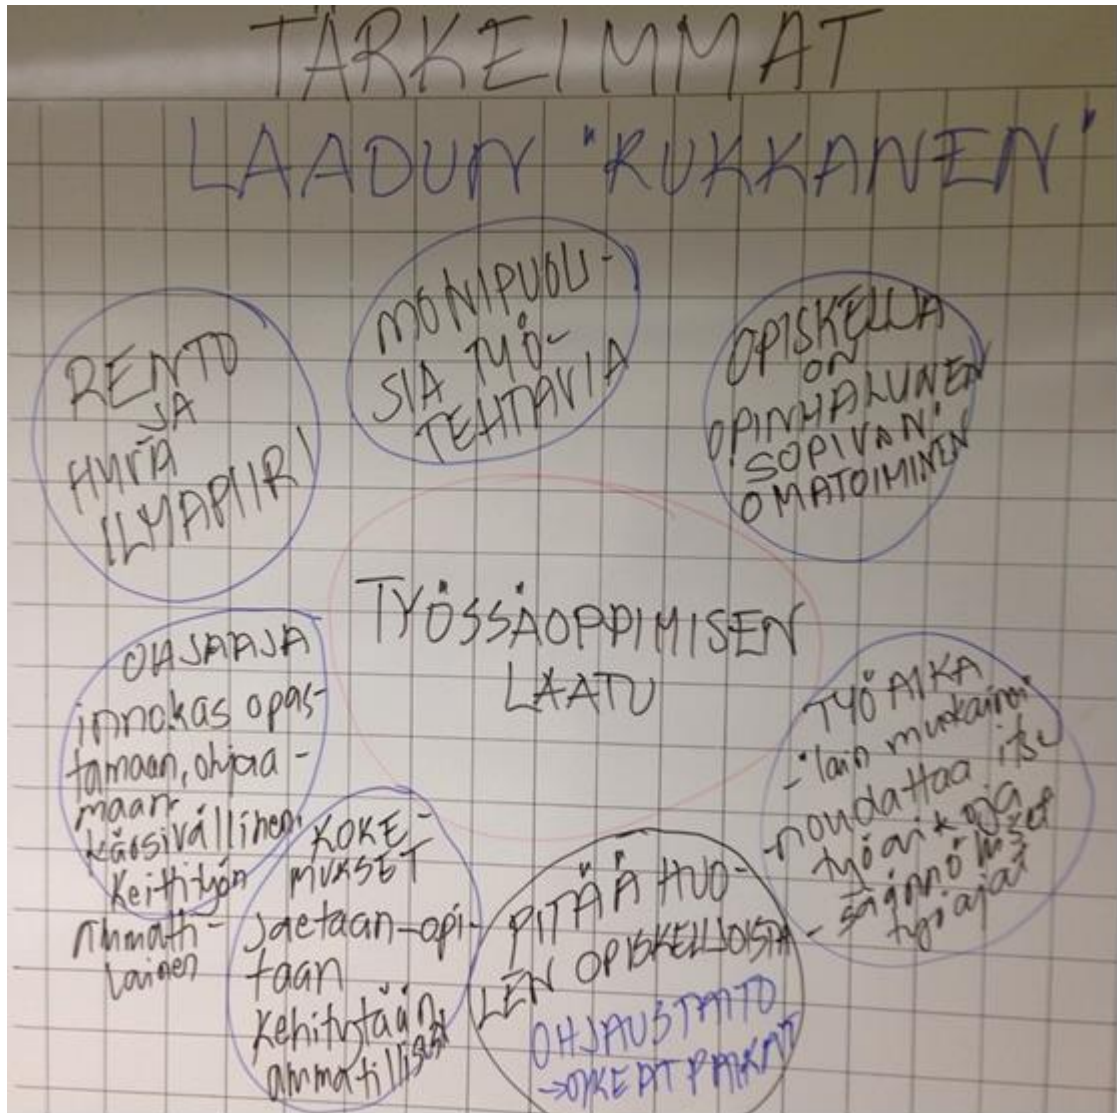 TÄRKEIMMÄT
LAADUN "KUKKANEN"
MONIPUOLI-
SIA TYÖ-
TEHTÄVIÄ
RENTO
JA
HYVÄ
ILMAPIIRI
OPISKELIJA
ON
OPINHALUINEN
SOPIVAN
OMATOIMINEN
TYÖSSÄOPPIMISEN
LAATU
OHJAAJA
innokas opas-
tamaan, ohjaa-
maan
kärsivällinen
Keittiötyön
Ammatti-
lainen
KOKE-
MUKSET
jaetaan-opi-
taan
Kehitytään
ammatillisesti
PITÄÄ HUO-
LEN OPISKELIJOISTA
OHJAUSTAITO
→ OIKEAT PAIKAT
TYÖAIKA
- lain mukainen
- noudattaa itse
työaikoja
- säännölliset
työajat